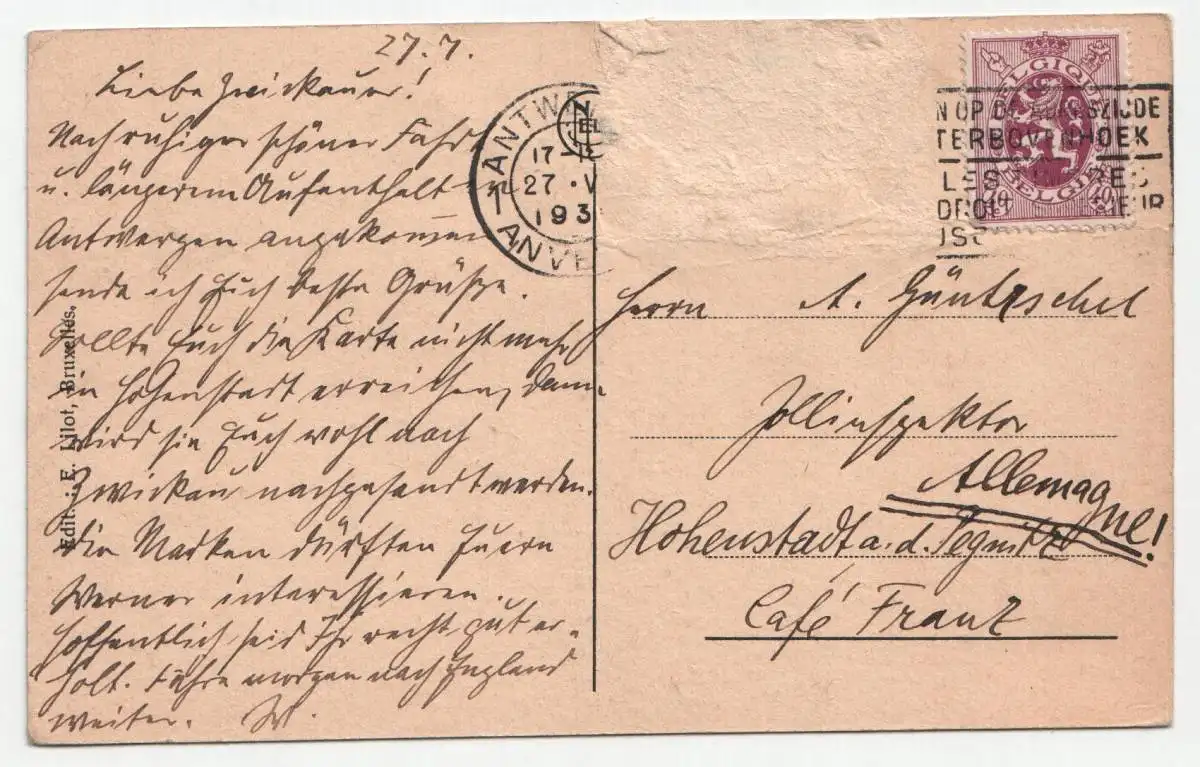 27.7.
Liebe Zwickauer!
Nach ruhiger schöner Fahrt
u. längerem Aufenthalt in
Antwerpen angekommen
sende ich Euch beste Grüße.
Sollte Euch die Karte nicht mehr
in Hohenstadt erreichen, dann
wird sie Euch wohl nach
Zwickau nachgesandt werden.
Die Marken dürften Euern
Werner interessieren.
Hoffentlich seid Ihr recht gut er-
holt. Fahre morgen nach England
weiter. W.
Edit.: E. Lilot, Bruxelles.
ANTWE
17-
27 · V
193
ANVE
BELGIQUE
BELGIE
40
N OP DE ZIJDE
TERBOVENHOEK
LES
DROIT IEUR
Herrn A. Güntzschel
Zollinspektor
Allemagne!
Hohenstadt a. d. Pegnitz
Café Franz